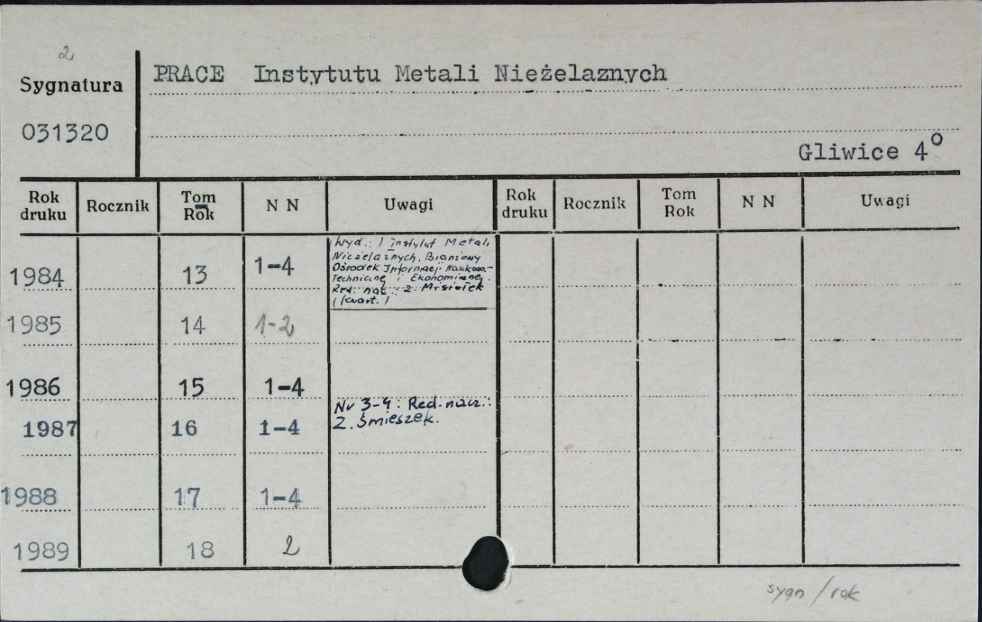 2
Sygnatura
PRACE Instytutu Metali Nieżelaznych
031320
Gliwice 4°
Rok druku Rocznik Tom Rok N N Uwagi Rok druku Rocznik Tom Rok N N Uwagi
Wyd.: Instytut Metali
Nieżelaznych, Branżowy
Ośrodek Informacji Naukowo-
Technicznej i Ekonomicznej.
Red. nacz.: Z.
/kwart./
1984 13 1-4
1985 14 1-2
1986 15 1-4
Nr 3-4: Red. nacz.:
Z. Śmieszek.
1987 16 1-4
1988 17 1-4
1989 18 2
sygn/rok